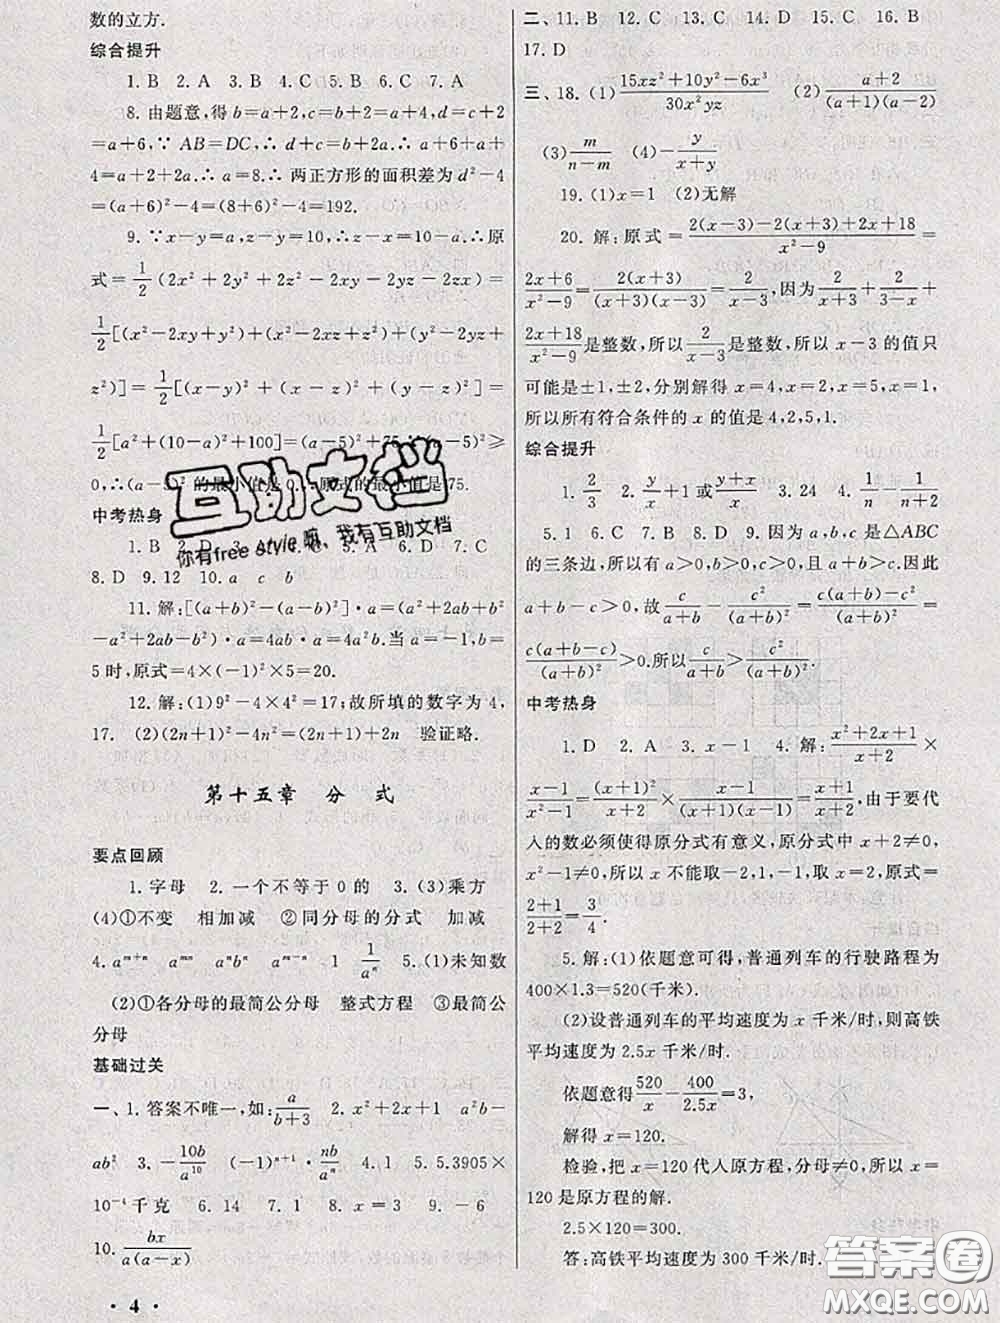 数的立方.
综合提升
1. B 2. A 3. B 4. C 5. B 6. C 7. A
8. 由题意,得 b=a+2,c=b+2=a+4,d=c+2
=a+6,∵ AB=DC,∴ d+c=b+2a.∴ a+6+a+
4=a+2+2a.∴ a=8.∴ 两正方形的面积差为 d²-4
=(a+6)²-4=(8+6)²-4=192.
9. ∵x-y=a,z-y=10,∴z-x=10-a,∴原
式=1/2(2x²+2y²+2z²-2xy-2yz-2zx)=
1/2[(x²-2xy+y²)+(x²-2xz+z²)+(y²-2yz+
z²)]=1/2[(x-y)²+(x-z)²+(y-z)²]=
1/2[a²+(10-a)²+100]=(a-5)²+75.∵(a-5)²≥
0,∴(a-5)²的最小值是0.∴原式的最小值是75.
中考热身
1. B 2. D
8. D 9. 12 10. a c b
11. 解:[(a+b)²-(a-b)²]·a=(a²+2ab+b²
-a²+2ab-b²)·a=4ab·a=4a²b.当 a=-1,b=
5 时,原式=4×(-1)²×5=20.
12. 解:(1)9²-4×4²=17;故所填的数字为 4,
17. (2)(2n+1)²-4n²=(2n+1)+2n 验证略.
第十五章 分 式
要点回顾
1. 字母 2. 一个不等于 0 的 3. (3)乘方
(4)①不变 相加减 ②同分母的分式 加减
4. aᵐ⁺ⁿ aᵐⁿ aⁿbⁿ aᵐ⁻ⁿ 1 1/aⁿ 5. (1)未知数
(2)①各分母的最简公分母 整式方程 ③最简公
分母
基础过关
一、1. 答案不唯一,如:a/(b+3) 2. x²+2x+1 a²b-
ab² 3. -10b/a¹⁰ (-1)ⁿ⁺¹·nb/aⁿ 4. 1 5. 5.3905×
10⁻⁴千克 6. 14 7. 1 8. x=3 9. -2
10. bx/(a(a-x))
· 4 ·
二、11. B 12. C 13. C 14. D 15. C 16. B
17. D
三、18. (1)(15xz²+10y²-6x³)/(30x²yz) (2)(a+2)/((a+1)(a-2))
(3)m/(n-m) (4)-y/(x+y)
19. (1)x=1 (2)无解
20. 解:原式=(2(x-3)-2(x+3)+2x+18)/(x²-9)=
(2x+6)/(x²-9)=(2(x+3))/((x+3)(x-3))=2/(x-3),因为2/(x+3)+2/(3-x)+
(2x+18)/(x²-9)是整数,所以2/(x-3)是整数,所以 x-3 的值只
可能是±1,±2,分别解得 x=4,x=2,x=5,x=1.
所以所有符合条件的 x 的值是 4,2,5,1.
综合提升
1. 2/3 2. y/x+1或(y+x)/x 3. 24 4. 1/n-1/(n+2)
5. 1 6. D 7. C 8. D 9. 因为 a,b,c 是△ABC
的三条边,所以有 a>0,b>0,c>0,且 a+b>c.因此
a+b-c>0,故c/(a+b)-c²/(a+b)²=(c(a+b)-c²)/(a+b)²=
(c(a+b-c))/(a+b)²>0.所以c/(a+b)>c²/(a+b)².
中考热身
1. D 2. A 3. x-1 4. 解:(x²+2x+1)/(x+2)×
(x-1)/(x²-1)=(x+1)²/(x+2)×(x-1)/((x+1)(x-1))=(x+1)/(x+2),由于要代
入的数必须使得原分式有意义,原分式中 x+2≠0,
x²-1≠0,所以 x 不能取-2,1,-1,取 x=2,原式=
(2+1)/(2+2)=3/4.
5. 解:(1)依题意可得,普通列车的行驶路程为
400×1.3=520(千米).
(2)设普通列车的平均速度为 x 千米/时,则高铁
平均速度为 2.5x 千米/时.
依题意得520/x-400/2.5x=3,
解得 x=120.
检验,把 x=120 代入原方程,分母≠0,所以 x=
120 是原方程的解.
2.5×120=300.
答:高铁平均速度为 300 千米/时.
互助文档
你有free style嘛、我有互助文档
答案圈
MXQE.COM